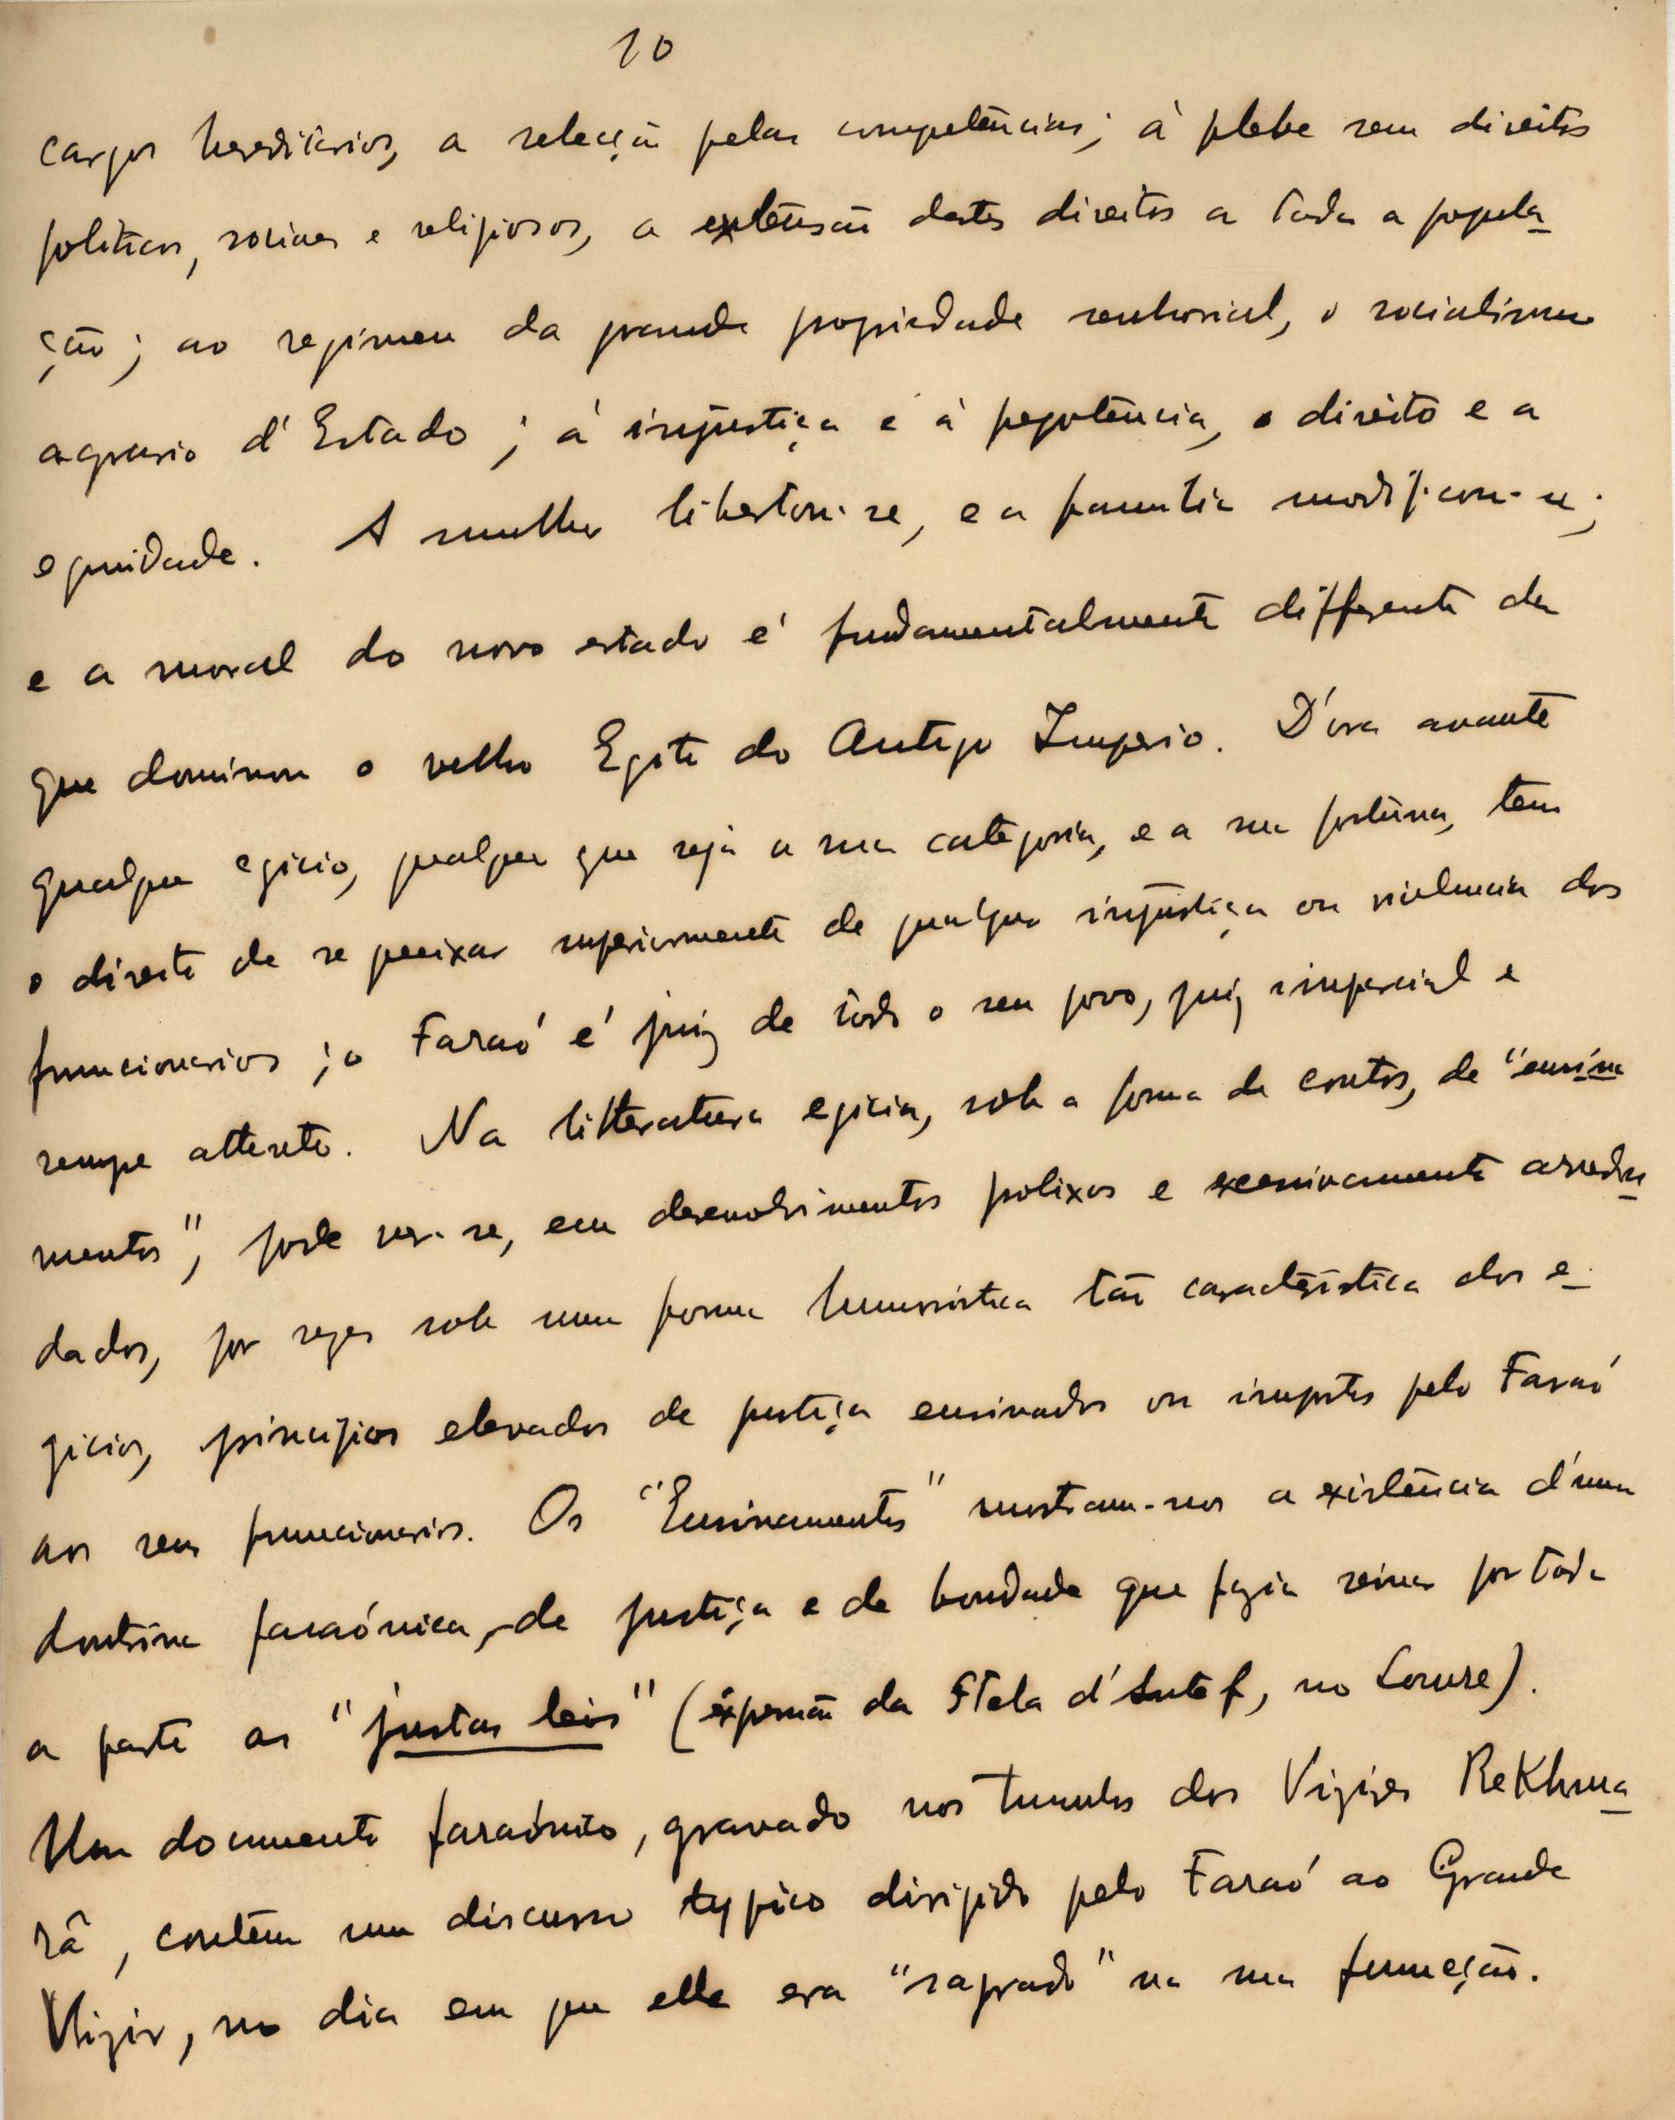 10
cargos hereditarios, a selecção pelas competências; á plebe sem direitos
politicos, sociaes e religiosos, a extensão destes direitos a toda a popula
ção; ao regimen da grande propriedade senhorial, o socialismo
agrario d'Estado; á injustiça e á prepotência, o direito e a
equidade. A mulher libertou-se, e a familia modificou-se;
e a moral do novo estado é fundamentalmente differente da
que dominou o velho Egito do Antigo Imperio. D'ora avante
qualquer egicio, qualquer que seja a sua categoria, e a sua fortuna, tem
o direito de se queixar superiormente de qualquer injustiça ou violencia dos
funcionarios; o Faraó é juiz de todo o seu povo, juiz imparcial e
sempre attento. Na litteratura egicia, sob a forma de contos, de "ensina
mentos", pode ver-se, em desenvolvimentos prolixos e excessivamente arredon
dados, por vezes sob uma forma humoristica tão caracteristica dos e
gicios, principios elevados de justiça ensinados ou impostos pelo Faraó
aos seus funcionarios. Os "Ensinamentos" mostram-nos a existência d'uma
doutrina faraónica, de justiça e de bondade que fazia reinar por toda
a parte as "justas leis" (expressão da Stela d'Intef, no Louvre).
Um documento faraónico, gravado nos tumulos dos Vizires Rekhma
râ, contêm um discurso typico dirigido pelo Faraó ao Grande
Vizir, no dia em que elle era "sagrado" na sua funcção.